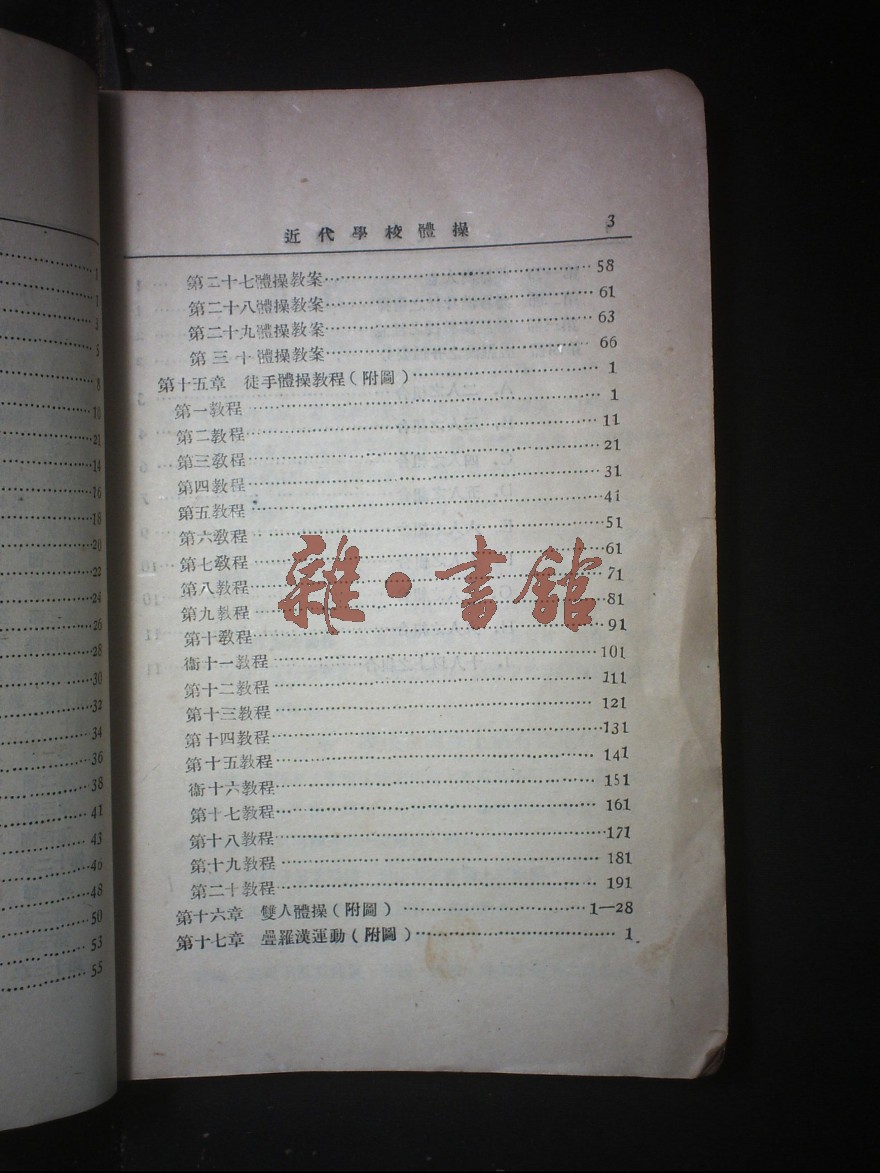 近代學校體操 3
第二十七體操教案 58
第二十八體操教案 61
第二十九體操教案 63
第三十體操教案 66
第十五章 徒手體操教程(附圖) 1
第一教程 1
第二教程 11
第三教程 21
第四教程 31
第五教程 41
第六教程 51
第七教程 61
第八教程 71
第九教程 81
第十教程 91
衞十一教程 101
第十二教程 111
第十三教程 121
第十四教程 131
第十五教程 141
衞十六教程 151
第十七教程 161
第十八教程 171
第十九教程 181
第二十教程 191
第十六章 雙人體操(附圖) 1—28
第十七章 疊羅漢運動(附圖) 1
雜·書館
1
1
3
5
8
10
21
14
16
18
20
22
24
26
28
30
32
34
36
38
41
43
46
48
50
53
55